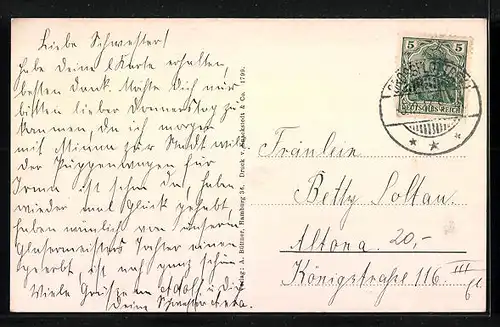 Liebe Schwester!
habe deine Karte erhalten,
besten Dank. Möchte Dich nur
bitten lieber Donnerstag zu
kommen, da ich morgen
mit Minna zur Stadt will
der Puppenwagen für
Irma ist schon da, haben
wieder mal Glück gehabt,
haben nämlich von unserm
Glasermeisters Tochter einen
geerbt ist noch ganz schön
Viele Grüsse an Adolf u. dich
Deine Schwester
Verlag: A. Büttner, Hamburg 36. Druck v. & Co. 1799.
5 5
DEUTSCHES REICH
Fräulein
Betty Soltau
Altona 20,-
Königstraße 116 III